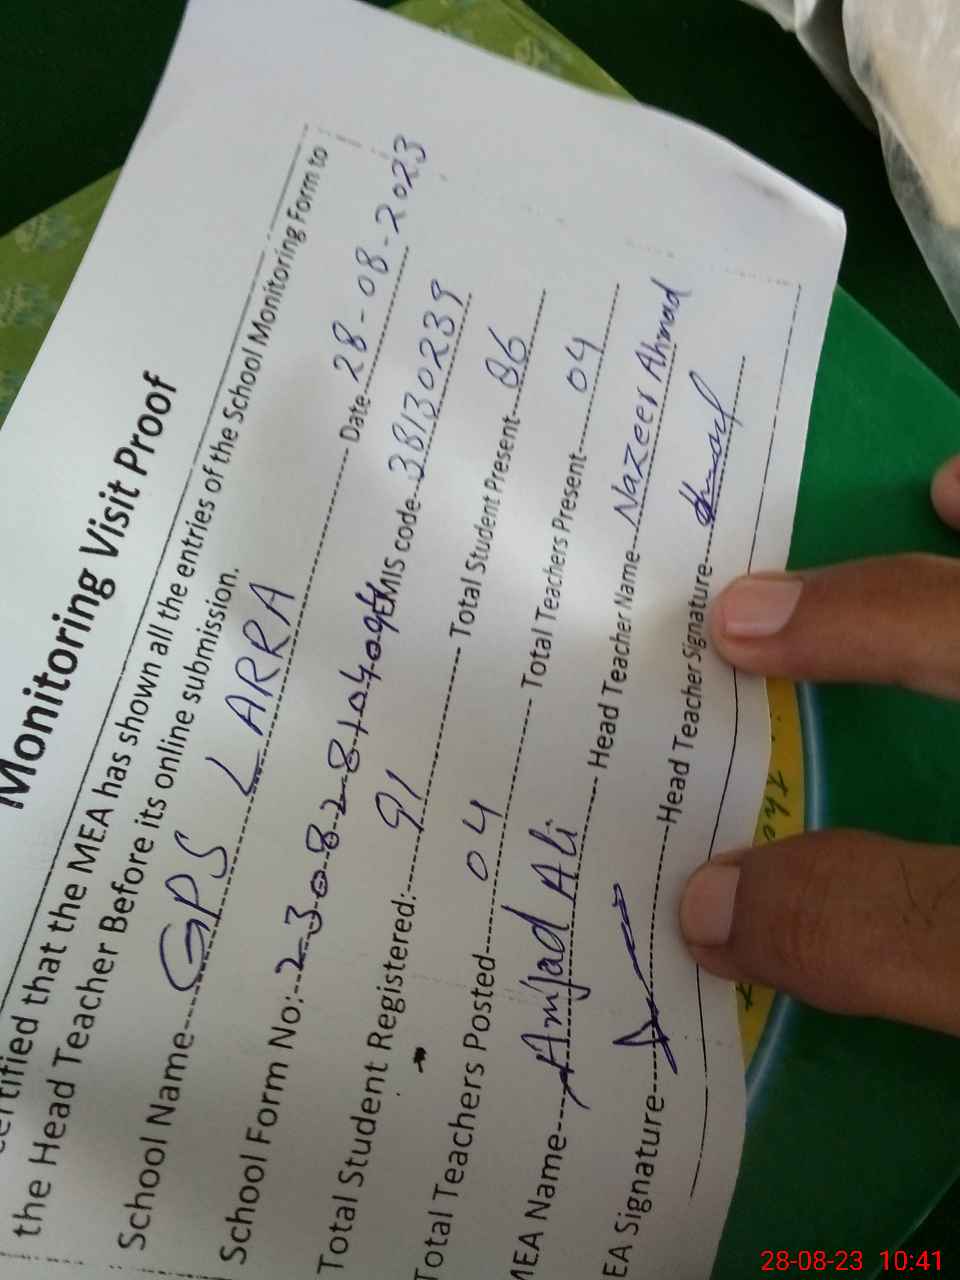 Monitoring Visit Proof
certified that the MEA has shown all the entries of the School Monitoring Form to
the Head Teacher Before its online submission.
School Name GPS LARRA Date 28-08-2023
School Form No: EMIS code 38130239
Total Student Registered: 91 Total Student Present 86
Total Teachers Posted 04 Total Teachers Present 04
MEA Name Amjad Ali Head Teacher Name Nazeer Ahmad
EA Signature Head Teacher Signature
the
28-08-23 10:41